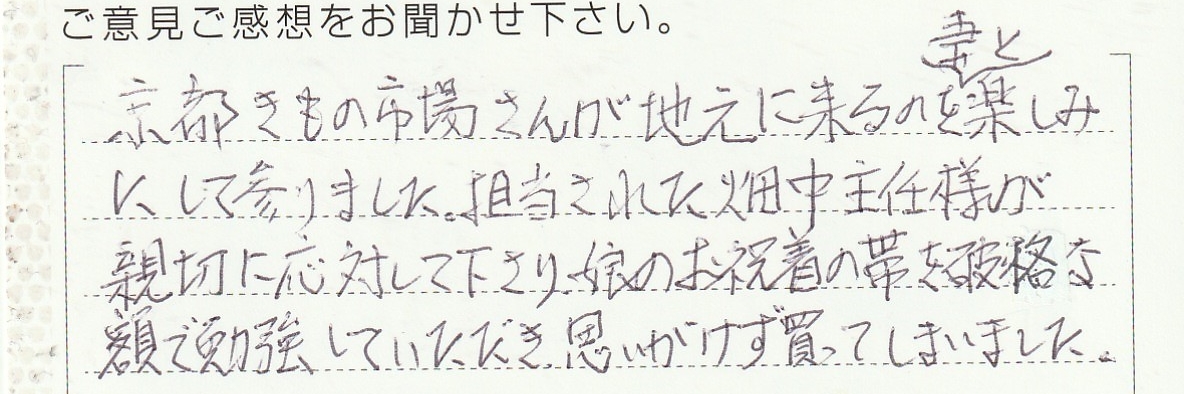 ご意見ご感想をお聞かせ下さい。
妻と
京都きもの市場さんが地元に来るのを楽しみ
にして参りました。担当された畑中主任様が
親切に応対して下さり、娘のお祝着の帯を破格な
額で勉強していただき、思いがけず買ってしまいました。